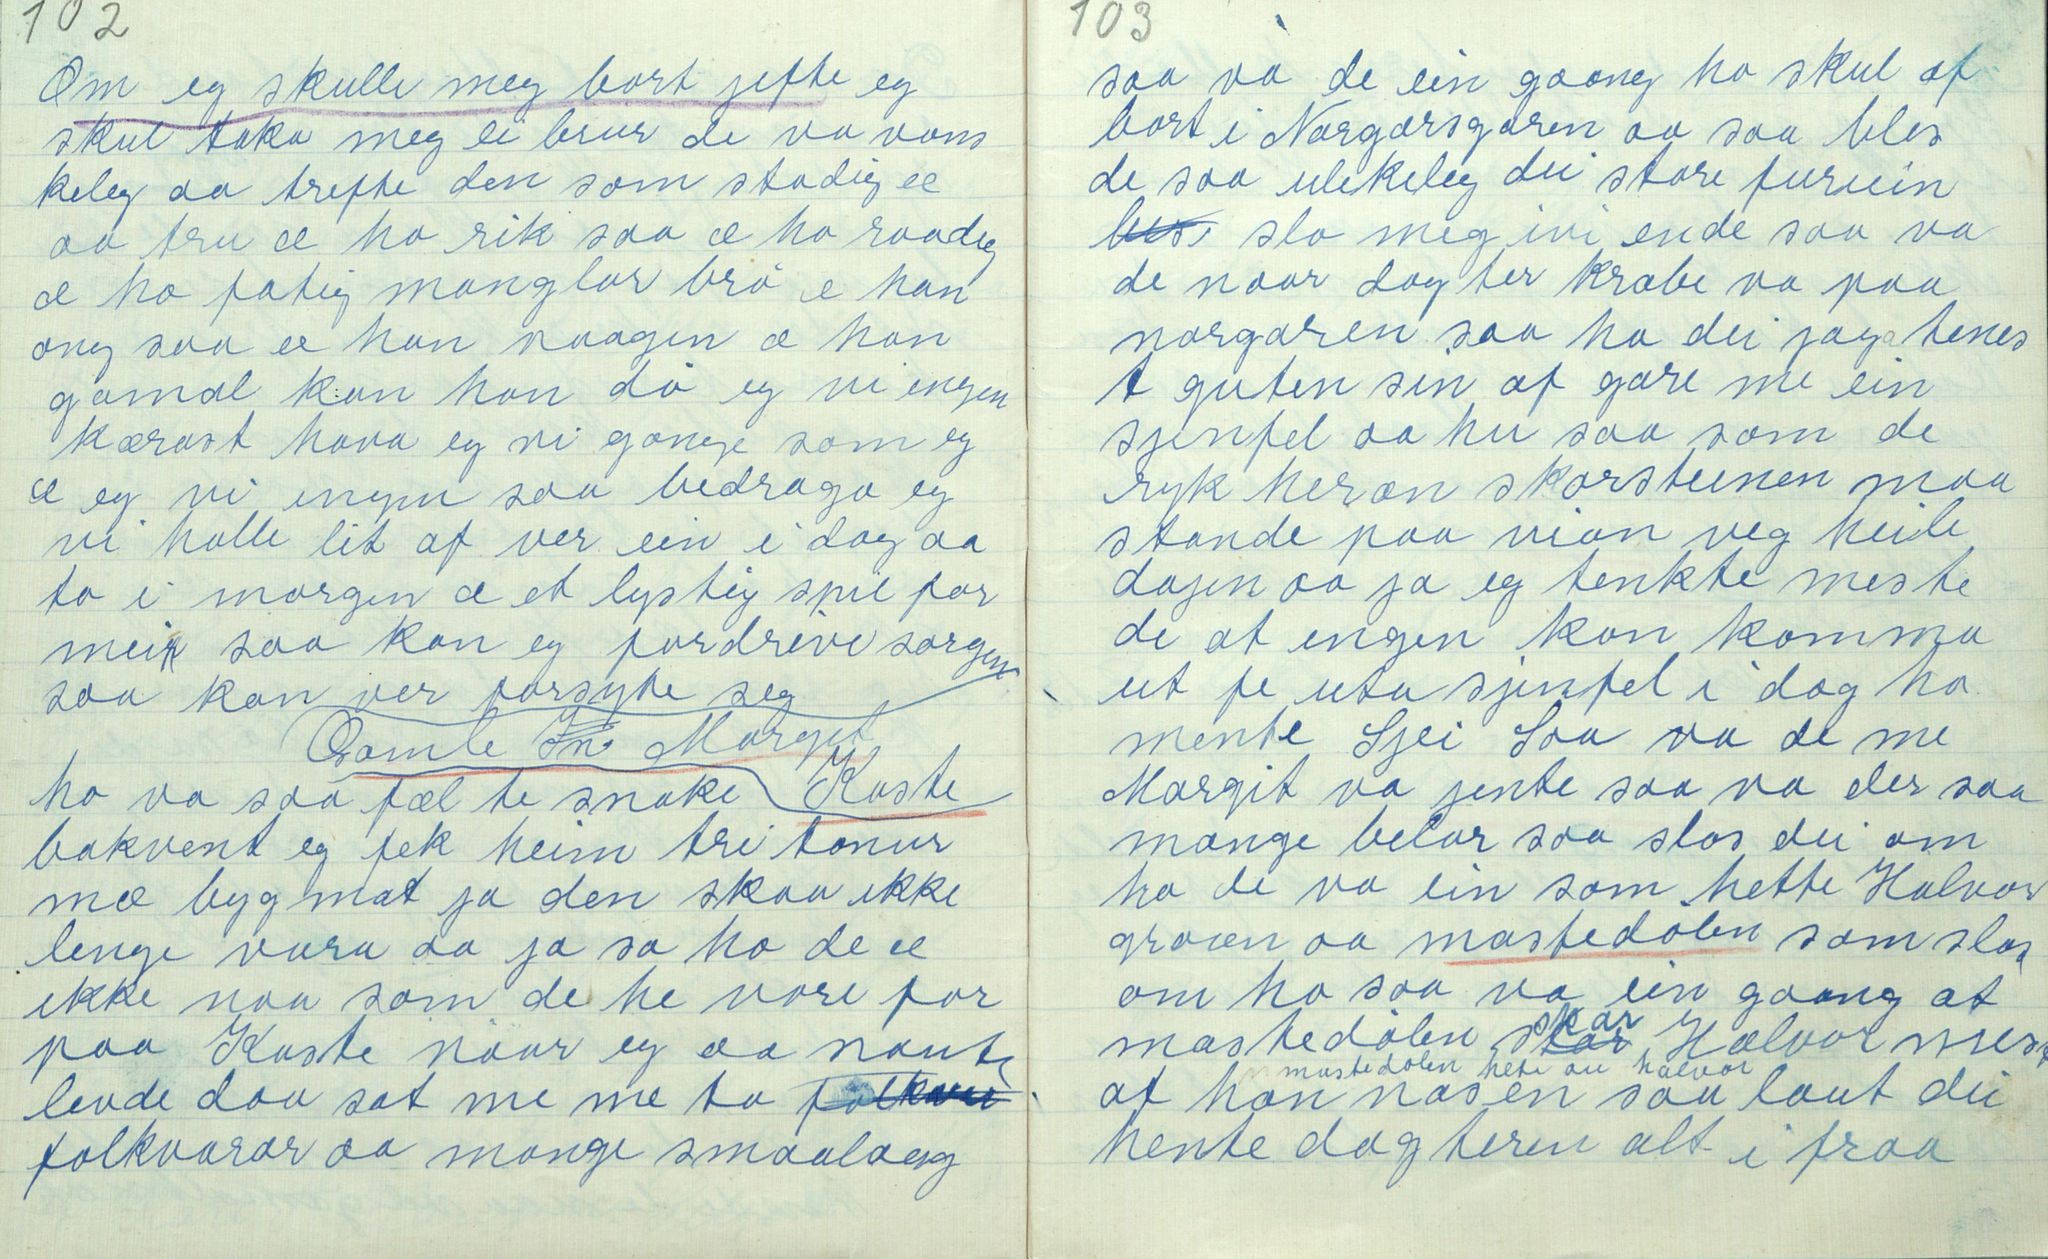 102
Om eg skulle meg bort jefte eg
skul taka meg ei brur de va vons
keleg aa trefte den som stadig æ
aa tru æ ho rik saa æ ho raadig
æ ho fatig manglar brö æ han
ong saa æ han vaagen æ han
gamal kan han dö eg vi engen
kærast hava eg vi gange som eg
æ eg vi engen saa bedraga eg
vi halle lit af ver ein i dag aa
to i morgen æ et lystig spil for
meir saa kan eg fordrive sorgen
saa kan ver forsyte seg
Gamle Margit
ho va saa fæl te snake Kaste
bakvent eg fek heim tri tonur
mæ bygmat ja den skaa ikke
lenge vara aa ja sa ho de æ
ikke naa som de he vore for
paa Kaste naar eg aa nauts
lende daa sat me me to
folkvarar aa mange smaalaag
103
saa va de ein gaang ho skul af
bort i Norgarsgaren aa saa bles
de saa ulekeleg dei store furuein
slo meg ivi ende saa va
de naar dagter Krabe va paa
norgaren saa ha dei jaga tenes
t guten sin af gare me ein
sjenfel aa hu saa som de
ryk heran skorsteinen maa
stande paa vian veg heile
dagen aa ja eg tenkte meste
de at engen kan komma
ut fe uta sjenfel i dag ha
mente Sjei Saa va de me
Margit va jente saa va der saa
mange belar saa slos dei om
ho de va ein som hette Halvor
graven aa mastedölen som slos
om ho saa va ein gaang at
mastedölen skar Halvor mest
mastedölen hete au halvor
af han nasen saa laut dei
hente dagteren alt i fraa